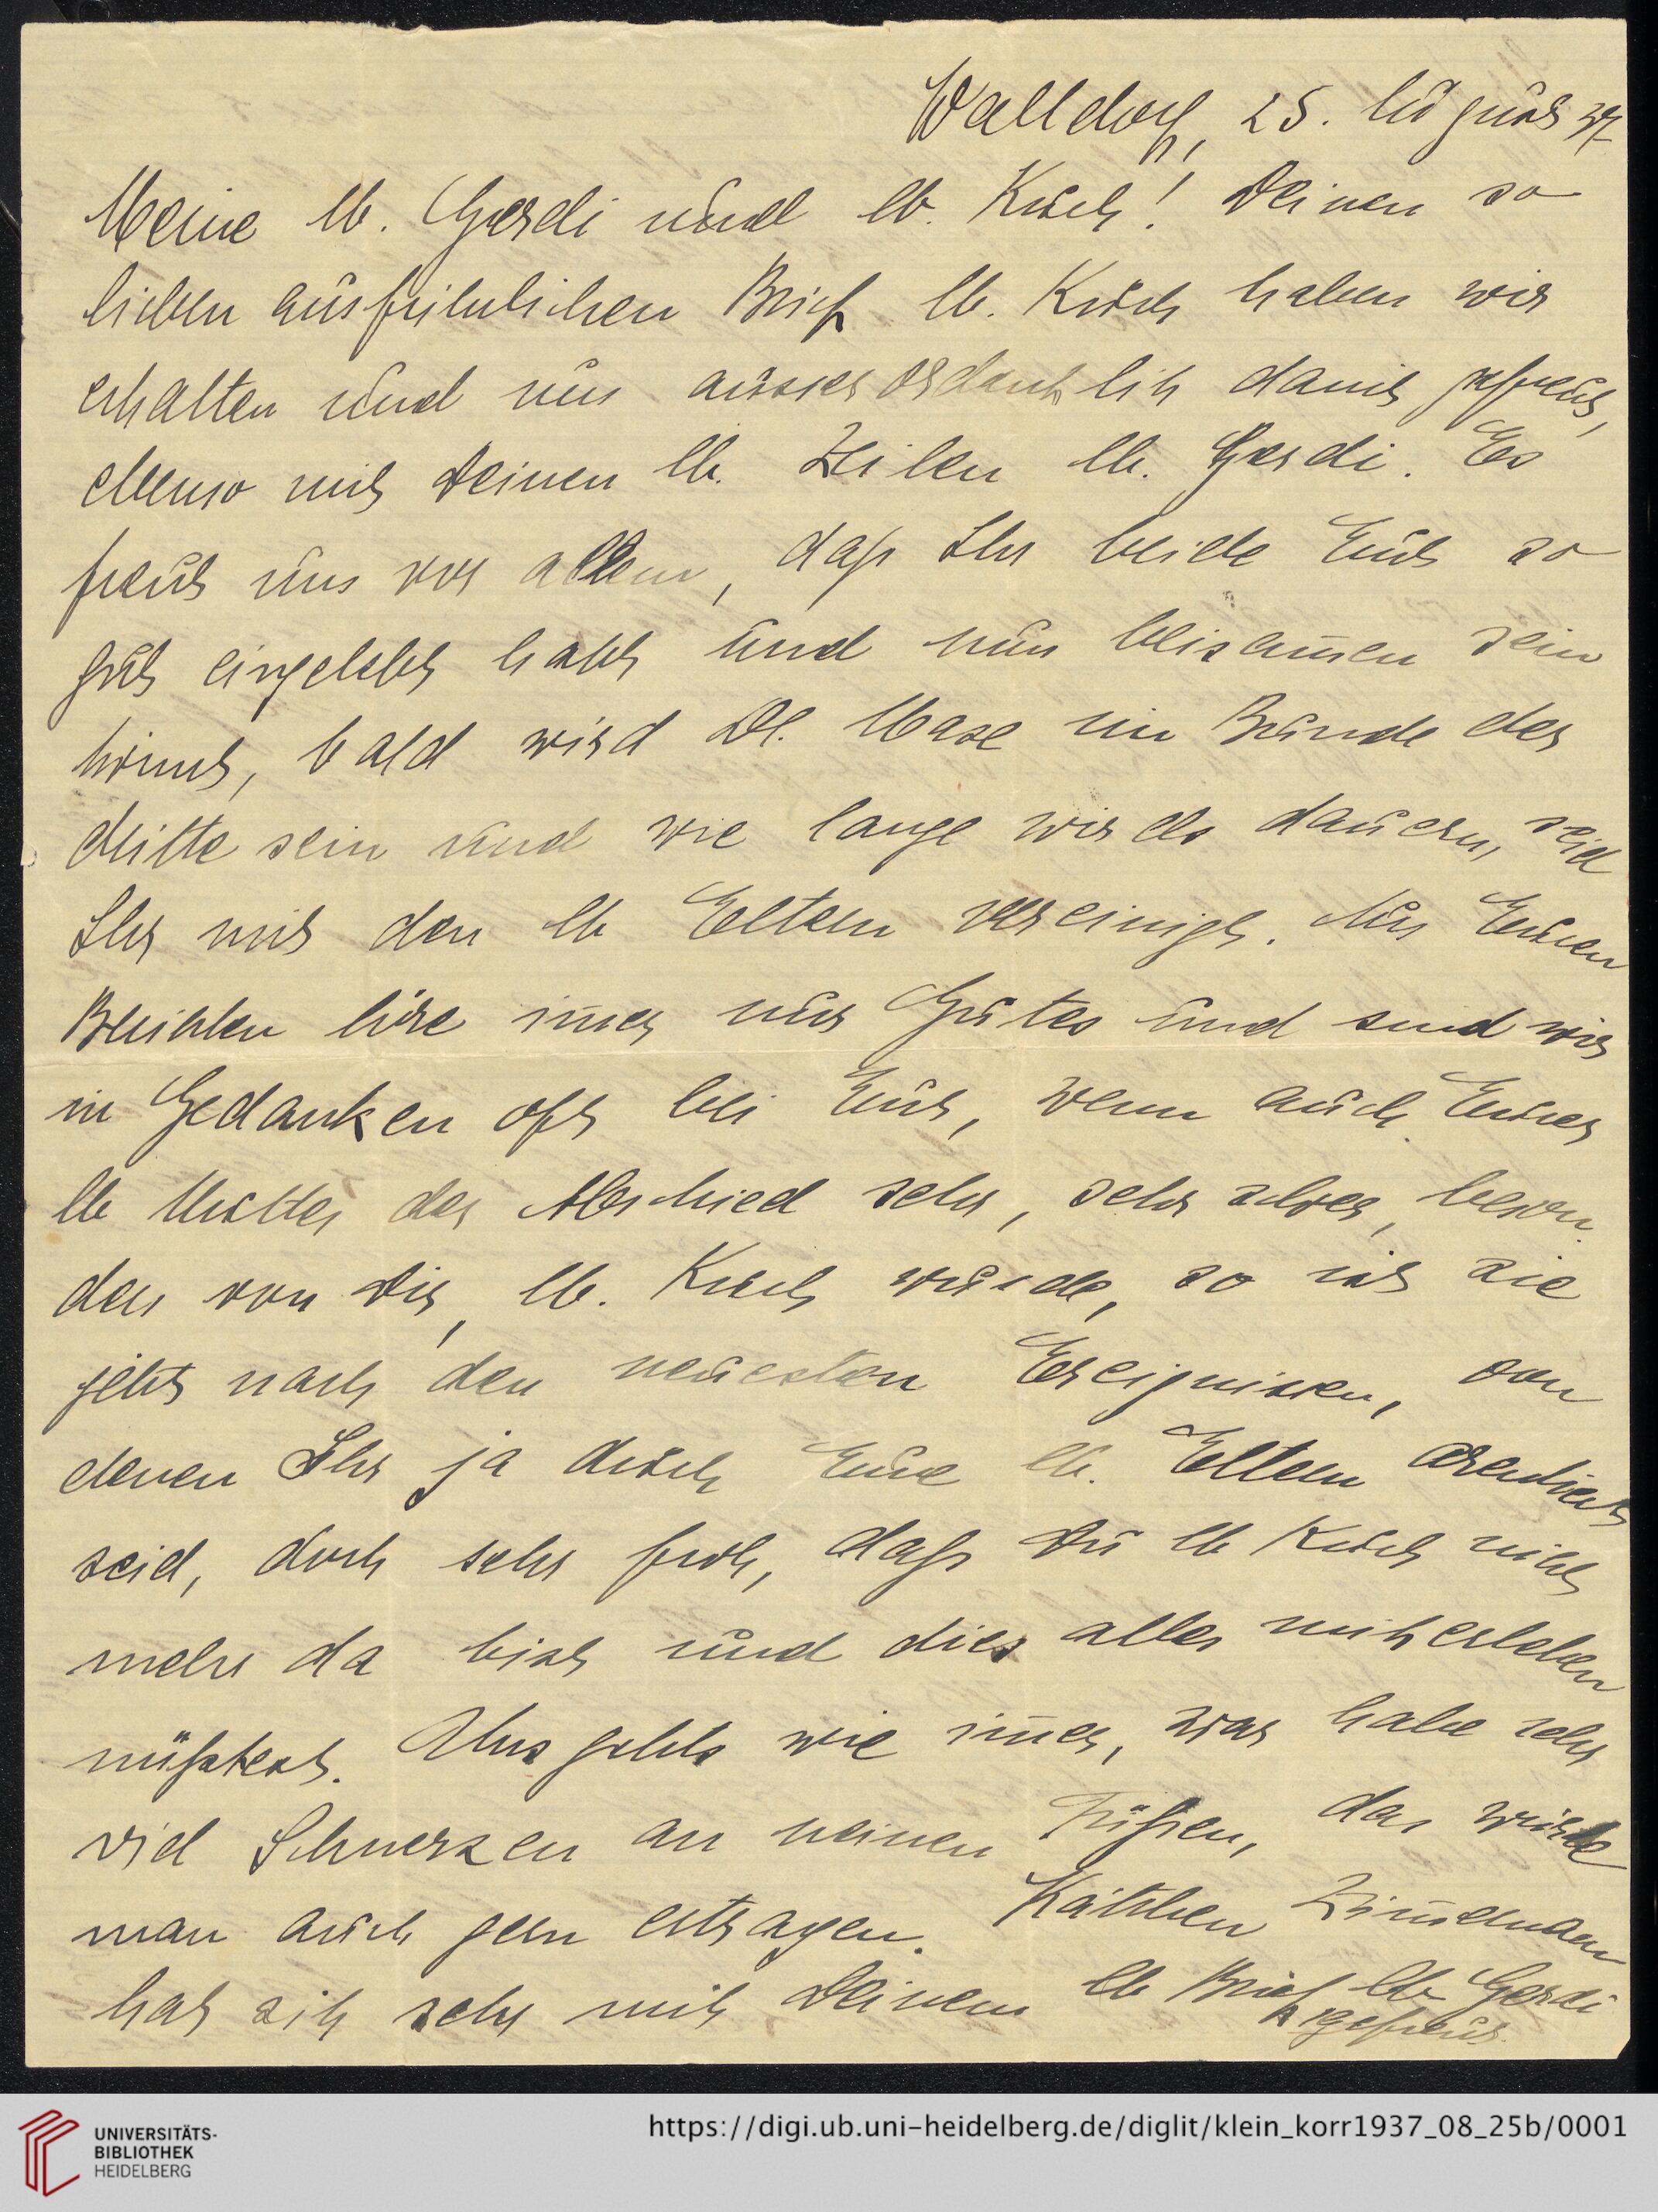 Walldorf, 25. August 37
Meine lb. Gerdi und lb. Kurt! Deinen so
lieben ausführlichen Brief lb. Kurt haben wir
erhalten und uns ausserordentlich damit gefreut,
ebenso mit Deinen lb. Zeilen lb. Gerdi. Es
freut uns vor allem, daß Ihr beide Euch so
gut eingelebt habt und nun beisam̅en sein
könnt, bald wird Dl. Maxe im Bunde der
dritte sein und wie lange wirds dauern, seid
Ihr mit den lb Eltern vereinigt. Aus Euren
Berichten höre im̅er nur Gutes und sind wir
in Gedanken oft bei Euch, wenn auch Eurer
lb Mutter der Abschied sehr, sehr schwer, beson
ders von Dir, lb. Kurt wurde, so ist sie
jetzt nach den neuesten Ereignissen, von
denen Ihr ja durch Eure lb. Eltern orentiert
seid, doch sehr froh, daß Du lb Kurt nicht
mehr da bist und dies alles miterleben
müßtest. Uns gehts wie im̅er, zwar habe sehr
viel Schmerzen an meinen Füßen, das würde
man auch gern ertragen. Kätchen Zim̅erman
hat sich sehr mit Deinem lb Brief lb Gerdi
gefreut.
UNIVERSITÄTS-
BIBLIOTHEK
HEIDELBERG
https://digi.ub.uni-heidelberg.de/diglit/klein_korr1937_08_25b/0001